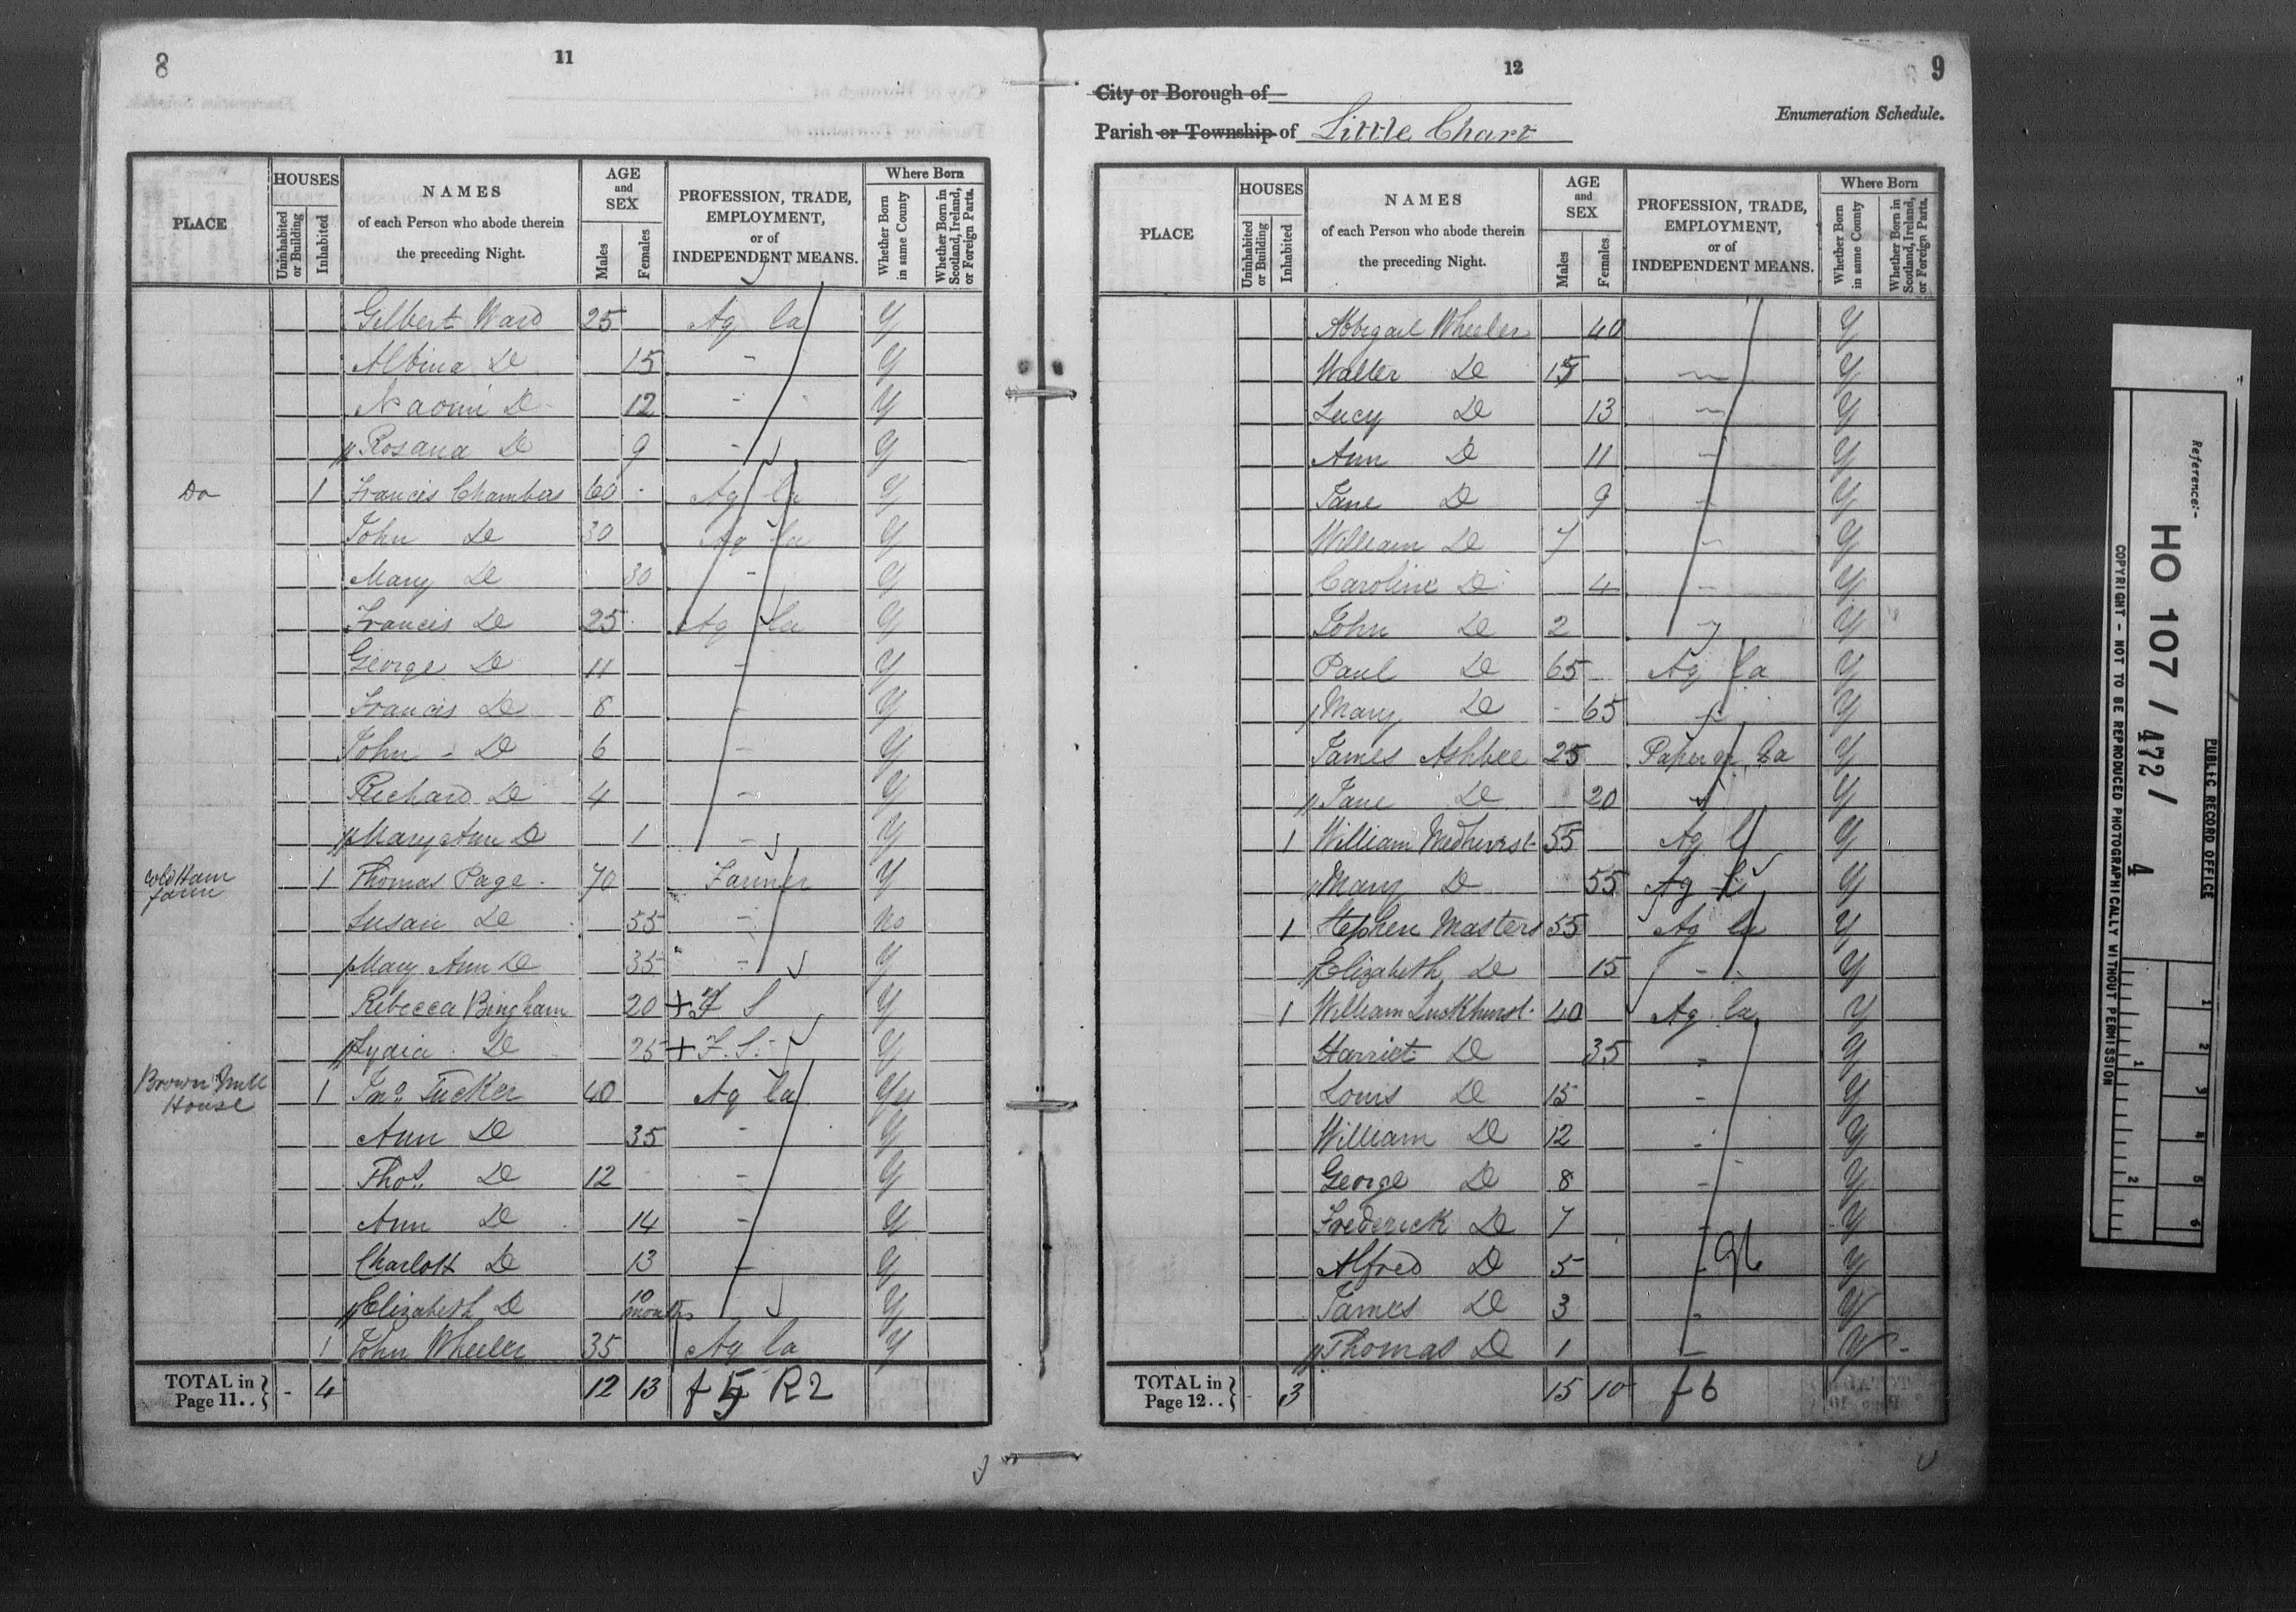 8
11
PLACE
HOUSES
Uninhabited or Building
Inhabited
NAMES
of each Person who abode therein
the preceding Night.
AGE
and
SEX
Males
Females
PROFESSION, TRADE,
EMPLOYMENT,
or of
INDEPENDENT MEANS.
Where Born
Whether Born in same County
Whether Born in Scotland, Ireland, or Foreign Parts.
Gilbert Ward 25 Ag la Y
Albina Do 15 - Y
Naomi Do 12 - Y
Rosana Do 9 - Y
Do 1 Francis Chambers 60 Ag la Y
John Do 30 Ag la Y
Mary Do 30 - Y
Francis Do 25 Ag la Y
George Do 11 - Y
Francis Do 8 - Y
John Do 6 - Y
Richard Do 4 - Y
Mary Ann Do 1 - Y
Cold Ham
farm 1 Thomas Page 70 Farmer Y
Susan Do 55 - No
Mary Ann Do 35 - Y
Rebecca Bingham 20 + F S Y
Lydia Do 25 + F. S. Y
Brown Mill
House 1 Jno. Tucker 40 Ag la Yes
Ann Do 35 - Y
Thos. Do 12 - Y
Ann Do 14 - Y
Charlott Do 13 - Y
Elizabeth Do 10 months Y
1 John Wheeler 35 Ag la Y
TOTAL in
Page 11.. } - 4 12 13 f 5 R2
12
9
City or Borough of
Parish or Township of Little Chart
Enumeration Schedule.
PLACE
HOUSES
Uninhabited or Building
Inhabited
NAMES
of each Person who abode therein
the preceding Night.
AGE
and
SEX
Males
Females
PROFESSION, TRADE,
EMPLOYMENT,
or of
INDEPENDENT MEANS.
Where Born
Whether Born in same County
Whether Born in Scotland, Ireland, or Foreign Parts.
Abbigail Wheeler 40 Y
Walter Do 15 - Y
Lucy Do 13 - Y
Ann Do 11 - Y
Jane Do 9 - Y
William Do 7 - Y
Caroline Do 4 - Y
John Do 2 - Y
Paul Do 65 Ag la Y
Mary Do 65 - Y
James Ashbee 25 Paper La Y
Jane Do 20 Y
1 William Medhurst 55 Ag l Y
Mary Do 55 Ag l Y
1 Stephen Masters 55 Ag la Y
Elizabeth Do 15 - Y
1 William Luckhurst 40 Ag la Y
Harriet Do 35 - Y
Louis Do 15 - Y
William Do 12 - Y
George Do 8 - Y
Frederick Do 7 - Y
Alfred Do 5 - Y
James Do 3 - Y
Thomas Do 1 - Y
TOTAL in
Page 12.. } - 3 15 10 f 6
PUBLIC RECORD OFFICE
Reference:-
HO 107 / 472 / 4
COPYRIGHT - NOT TO BE REPRODUCED PHOTOGRAPHICALLY WITHOUT PERMISSION
1
2
1
2
3
4
5
6